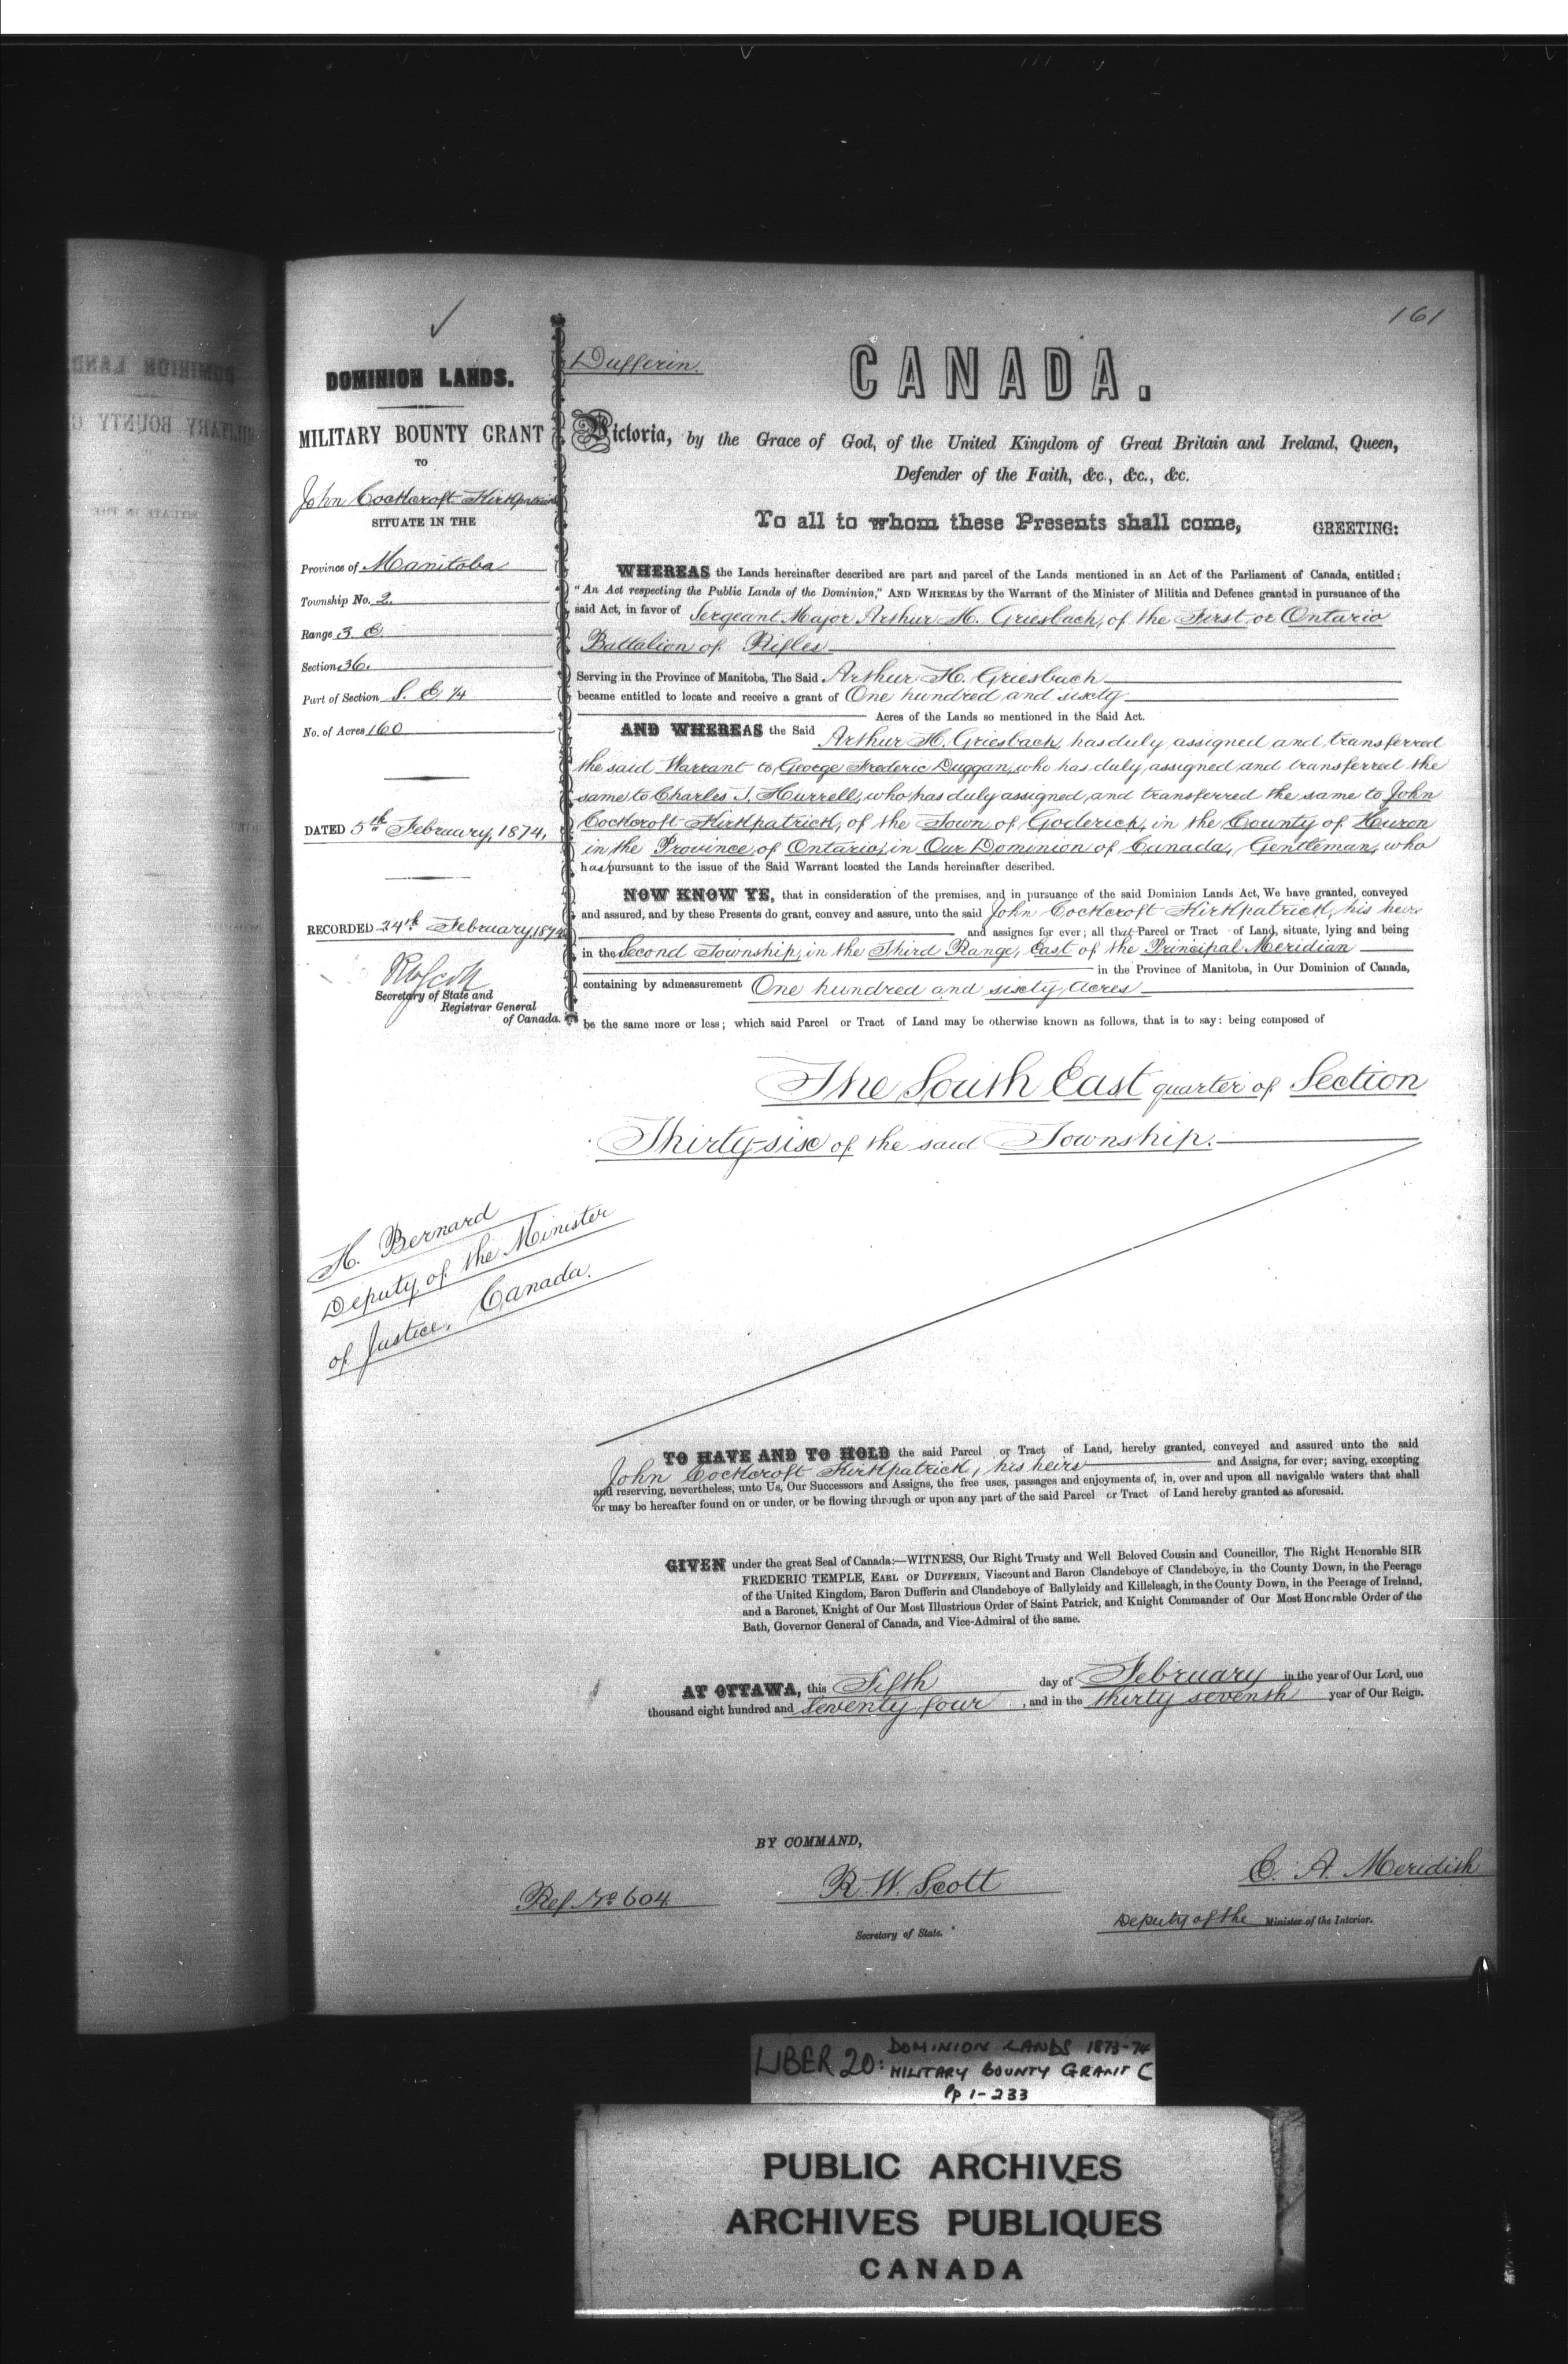 161
DOMINION LANDS.
MILITARY BOUNTY GRANT
TO
John Cockcroft Kirkpatrick
SITUATE IN THE
Province of Manitoba
Township No. 2.
Range 3 E.
Section 36.
Part of Section S. E. 1/4
No. of Acres 160
DATED 5th February, 1874,
RECORDED 24th February, 1874
RWScott
Secretary of State and
Registrar General
of Canada.
H. Bernard
Deputy of the Minister
of Justice, Canada.
Dufferin.
CANADA.
Victoria, by the Grace of God, of the United Kingdom of Great Britain and Ireland, Queen,
Defender of the Faith, &c., &c., &c.
To all to whom these Presents shall come, GREETING:
WHEREAS the Lands hereinafter described are part and parcel of the Lands mentioned in an Act of the Parliament of Canada, entitled:
"An Act respecting the Public Lands of the Dominion," AND WHEREAS by the Warrant of the Minister of Militia and Defence granted in pursuance of the
said Act, in favor of Sergeant Major Arthur H. Griesbach, of the First or Ontario
Battalion of Rifles
Serving in the Province of Manitoba, The Said Arthur H. Griesbach
became entitled to locate and receive a grant of One hundred and sixty
Acres of the Lands so mentioned in the Said Act.
AND WHEREAS the Said Arthur H. Griesbach, has duly assigned and transferred
the said Warrant to George Frederic Duggan, who has duly assigned and transferred the
same to Charles J. Hurrell, who has duly assigned and transferred the same to John
Cockcroft Kirkpatrick, of the Town of Goderich, in the County of Huron
in the Province of Ontario, in Our Dominion of Canada, Gentleman, who
has pursuant to the issue of the Said Warrant located the Lands hereinafter described.
NOW KNOW YE, that in consideration of the premises, and in pursuance of the said Dominion Lands Act, We have granted, conveyed
and assured, and by these Presents do grant, convey and assure, unto the said John Cockcroft Kirkpatrick, his heirs
and assignes for ever; all that Parcel or Tract of Land, situate, lying and being
in the Second Township, in the Third Range, East of the Principal Meridian
in the Province of Manitoba, in Our Dominion of Canada,
containing by admeasurement One hundred and sixty Acres
be the same more or less; which said Parcel or Tract of Land may be otherwise known as follows, that is to say: being composed of
The South East quarter of Section
Thirty-six of the said Township.
TO HAVE AND TO HOLD the said Parcel or Tract of Land, hereby granted, conveyed and assured unto the said
John Cockcroft Kirkpatrick, his heirs and Assigns, for ever; saving, excepting
and reserving, nevertheless, unto Us, Our Successors and Assigns, the free uses, passages and enjoyments of, in, over and upon all navigable waters that shall
or may be hereafter found on or under, or be flowing through or upon any part of the said Parcel or Tract of Land hereby granted as aforesaid.
GIVEN under the great Seal of Canada:—WITNESS, Our Right Trusty and Well Beloved Cousin and Councillor, The Right Honorable SIR
FREDERIC TEMPLE, EARL OF DUFFERIN, Viscount and Baron Clandeboye of Clandeboye, in the County Down, in the Peerage
of the United Kingdom, Baron Dufferin and Clandeboye of Ballyleidy and Killeleagh, in the County Down, in the Peerage of Ireland,
and a Baronet, Knight of Our Most Illustrious Order of Saint Patrick, and Knight Commander of Our Most Honorable Order of the
Bath, Governor General of Canada, and Vice-Admiral of the same.
AT OTTAWA, this Fifth day of February in the year of Our Lord, one
thousand eight hundred and seventy four, and in the thirty seventh year of Our Reign.
BY COMMAND,
Ref No 604
R. W. Scott
Secretary of State.
E. A. Meridith
Deputy of the Minister of the Interior.
LIBER 20: DOMINION LANDS 1873-74
MILITARY BOUNTY GRANT C
Pp 1-233
PUBLIC ARCHIVES
ARCHIVES PUBLIQUES
CANADA